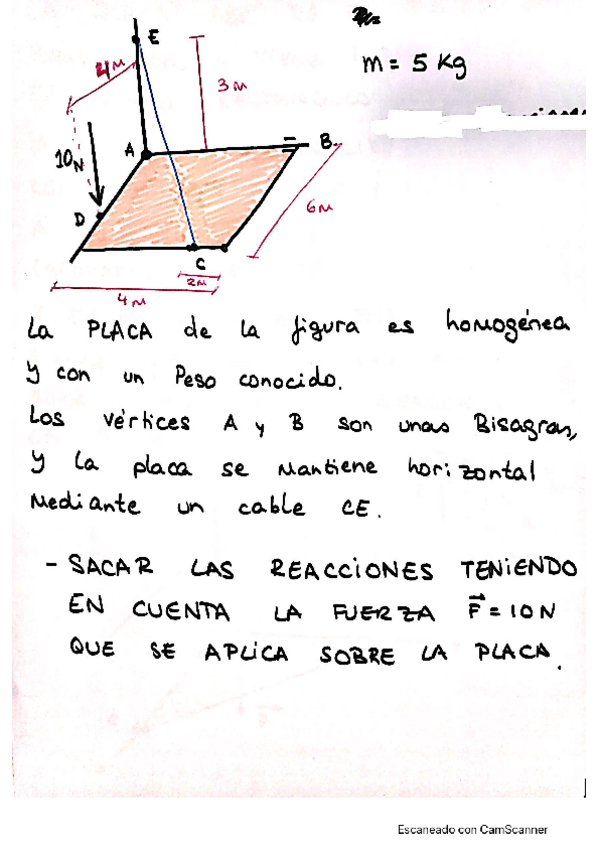 E
4M
3M
m = 5 Kg
10N
A
B
D
6M
C
2M
4M
La PLACA de la figura es homogénea
y con un Peso conocido.
Los vértices A y B son unas Bisagras,
y la placa se mantiene horizontal
Mediante un cable CE.
- SACAR LAS REACCIONES TENIENDO
EN CUENTA LA FUERZA F = 10N
QUE SE APLICA SOBRE LA PLACA.
Escaneado con CamScanner